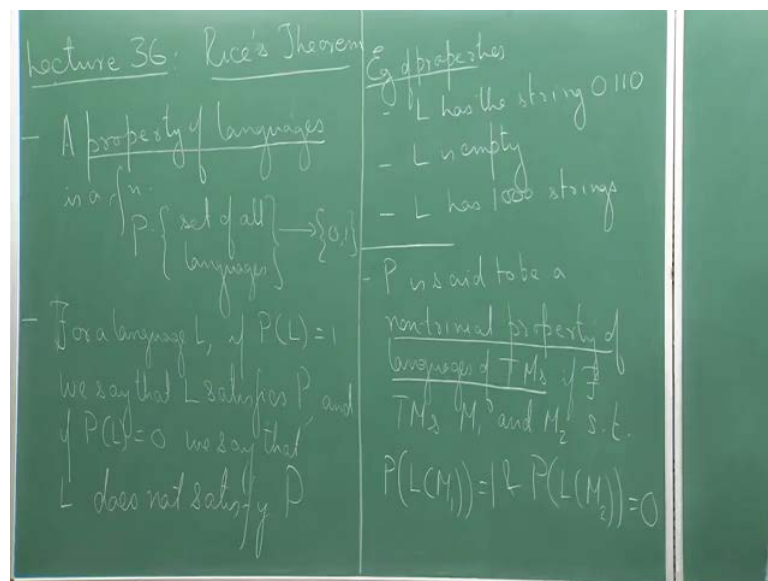 Lecture 36: Rice's Theorem
- A property of languages
is a fn.
P: { set of all languages } → {0,1}
- For a language L, if P(L) = 1
we say that L satisfies P and
if P(L)=0 we say that
L does not satisfy P
Eg of properties
- L has the string 0110
- L is empty
- L has 1000 strings
- P is said to be a
nontrivial property of
languages of TMs if ∃
TMs M₁ and M₂ s.t.
P(L(M₁))=1 & P(L(M₂))=0